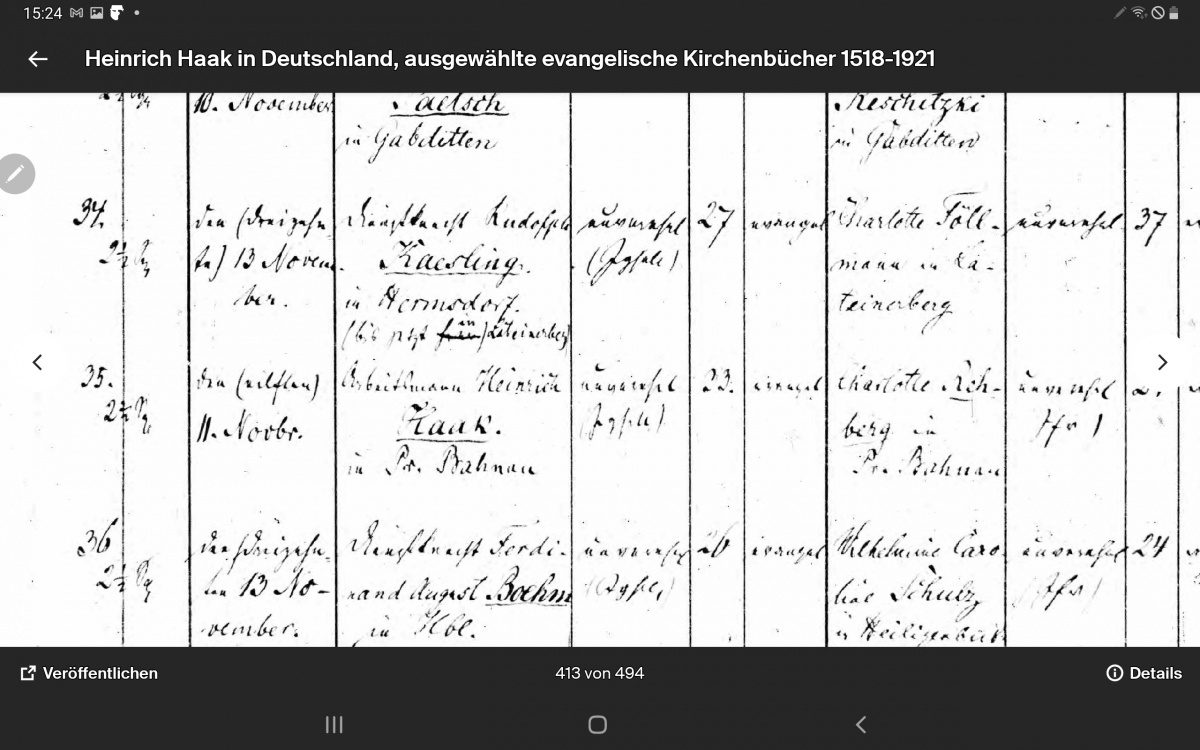 15:24
Heinrich Haak in Deutschland, ausgewählte evangelische Kirchenbücher 1518-1921
10. November
Paetsch
in Gabditten
Reschitzki
in Gabditten
34.
2½ Sg
den (dreizehn-
te) 13 Novem-
ber.
Dienstknecht Rudolph
Kaesling.
in Hermsdorf.
(bis jetzt in Lateinerberg)
unverehel
(Jgsell)
27
evangel
Charlotte Föll-
mann in La-
teinerberg
unverehel.
37
35.
2½ Sg
den (eilften)
11. Novbr.
Arbeitsmann Heinrich
Haak.
in Pr. Bahnau
unverehel
(Jgsell)
23.
evangel
Charlotte Reh-
berg in
Pr. Bahnau
unverehel
Jfr)
36
2½ Sg
den (dreizehn-
ten 13 No-
vember.
Dienstknecht Ferdi-
nand August Boehm
in Hbl.
unverehel
(Jgsell)
26
evangel
Wilhelmine Caro-
line Schulz
in Heiligenbeil
unverehel
(Jfr)
24
Veröffentlichen
413 von 494
Details